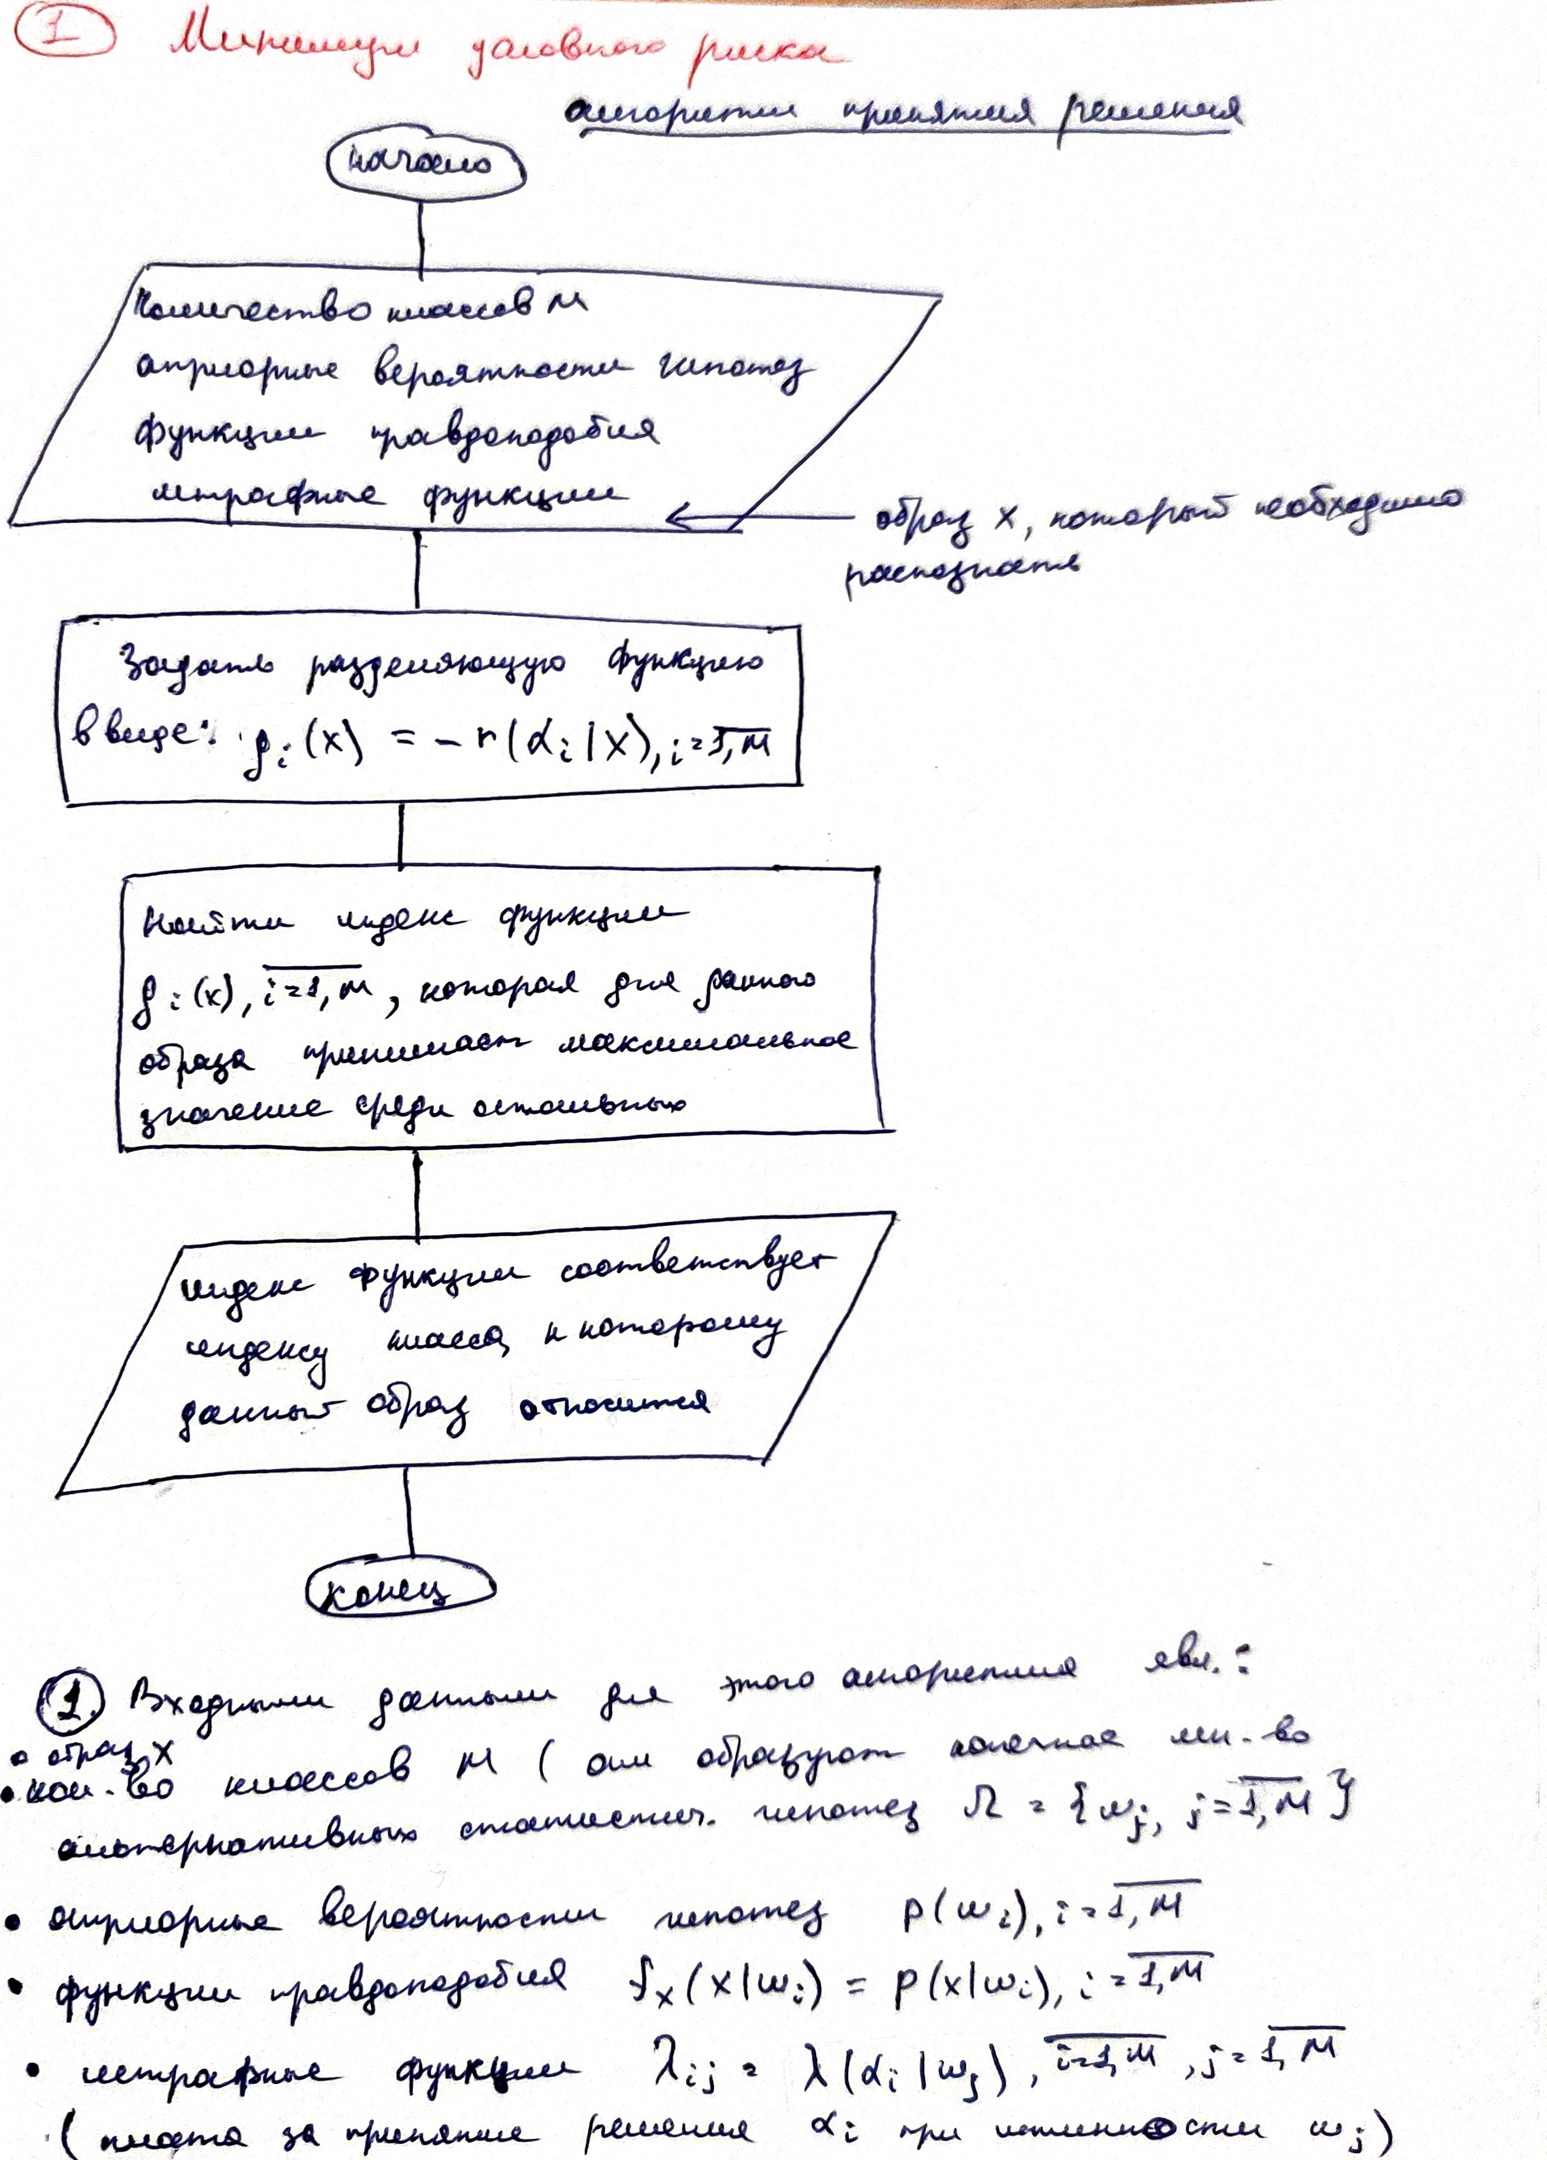 1 Минимум условного риска
алгоритм принятия решения
начало
Количество классов M
априорные вероятности гипотез
функции правдоподобия
штрафные функции
образ x, который необходимо
распознать
Задать разделяющую функцию
в виде: g_i(x) = -r(α_i|x), i=1,M
Найти индекс функции
g_i(x), i=1,M, которая для данного
образа принимает максимальное
значение среди остальных
индекс функции соответствует
индексу класса, к которому
данный образ относится
конец
1. Входными данными для этого алгоритма явл.:
• образ x
• кол-во классов M (они образуют конечное мн-во
альтернативных статистич. гипотез Ω = {ω_j, j=1,M}
• априорные вероятности гипотез p(ω_i), i=1,M
• функции правдоподобия f_x(x|ω_i) = p(x|ω_i), i=1,M
• штрафные функции λ_ij = λ(α_i|ω_j), i=1,M, j=1,M
(плата за принятие решения α_i при истинности ω_j)